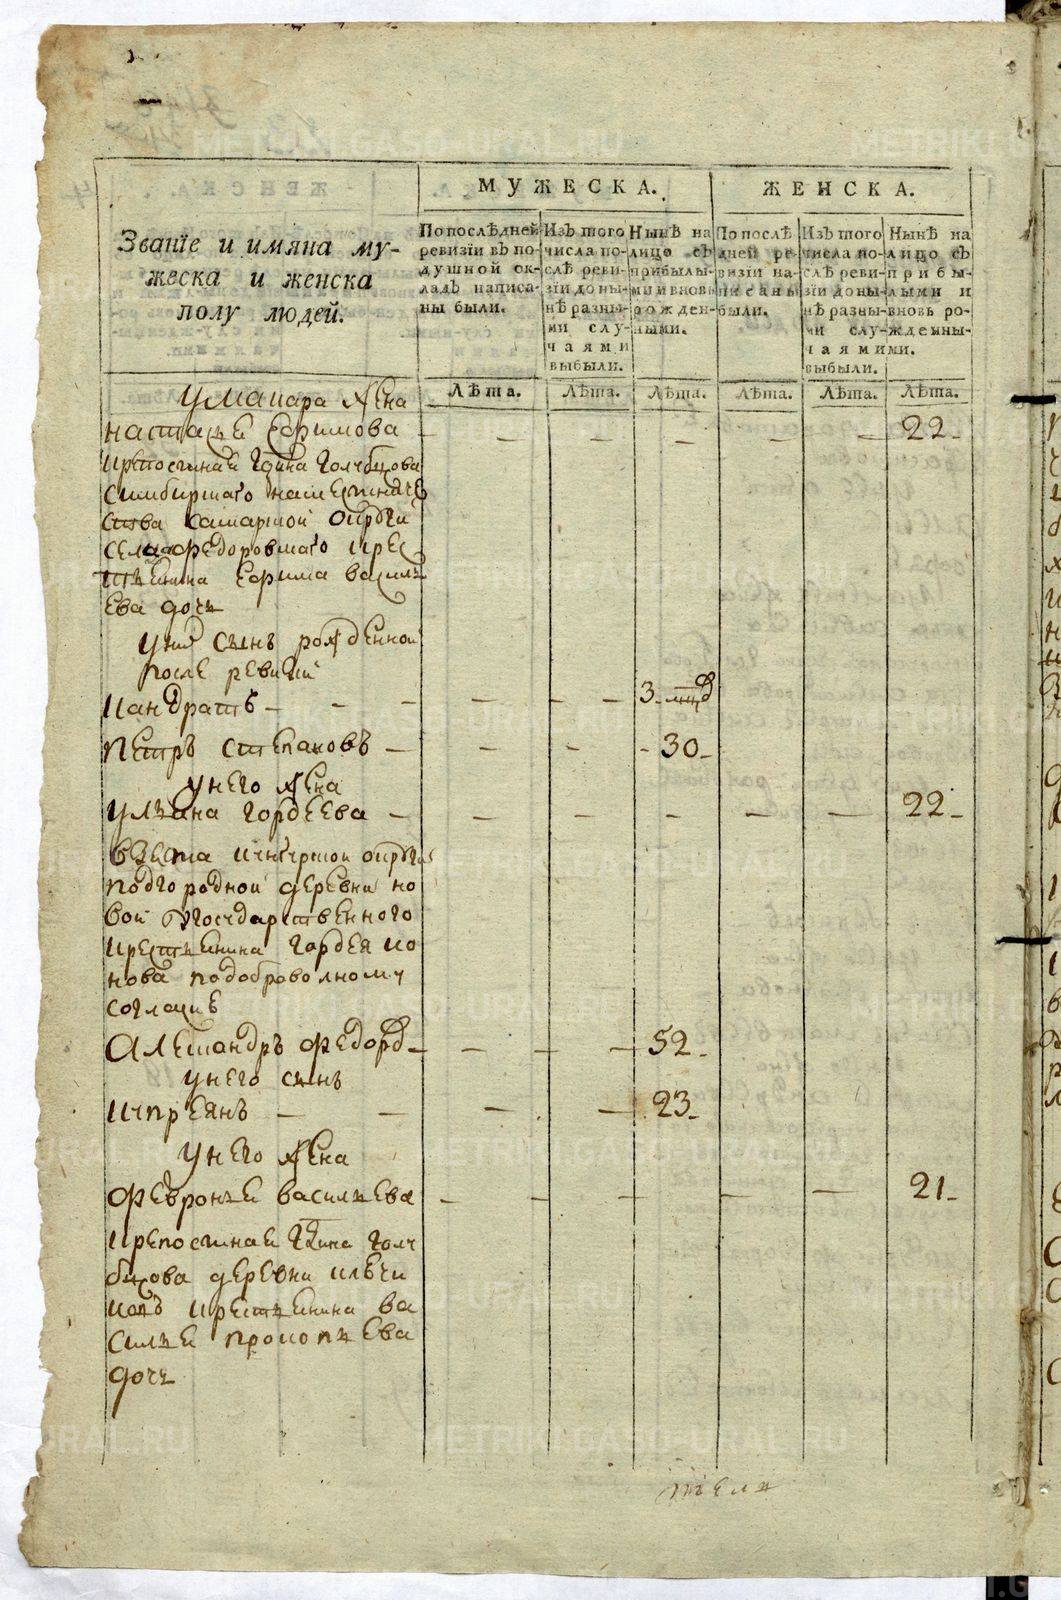 МУЖЕСКА.
ЖЕНСКА.
Званїе и имяна му-
жеска и женска
полу людей.
По послѣдней
ревизїи въ по-
душной ок-
ладъ написа-
ны были.
Изъ того
числа по-
слѣ реви-
зїи до ны-
нѣ разны-
ми слу-
чаями
выбыли.
Нынѣ на
лицо съ
прибылы-
ми и вновь
рожден-
ными.
По послѣ
дней ре-
визїи на-
писаны
были.
Изъ того
числа по-
слѣ реви-
зїи до ны-
нѣ разны-
ми слу-
чаями
выбыли.
Нынѣ на
лицо съ
прибы-
лыми и
вновь ро-
жденны-
ми.
Лѣта. Лѣта. Лѣта. Лѣта. Лѣта. Лѣта.
У макара жена
настасья ефимова 22
крепостная гдина голубцова
симбирскаго наместниче
ства самарской округи
села федоровскаго крес
тьянина ефима василь
ева дочь
у них сынъ рожденной
после ревизии
кандратъ 3 мцд
петръ степановъ 30
у него жена
ульяна гордеева 22
взята округи
подгородной деревни но
вой государственного
крестьянина гордея ко
нова по добровольному
согласию
Александръ федоров 52
у него сынъ
киприянъ 23
у него жена
февронья васильева 21
крепостная гдина голу
бцова деревни
крестьянина ва
силья прокопьева
дочь
METRIKI.GASO-URAL.RU